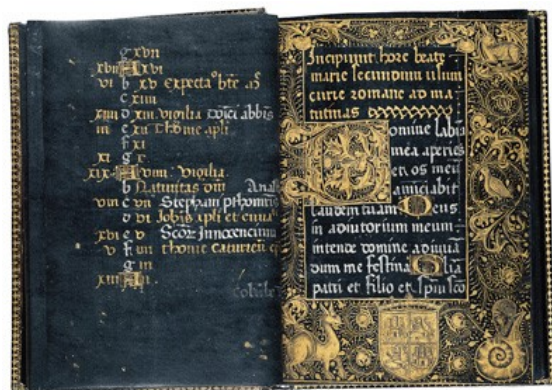 g xvii
xvii A xvi
vi b xv Expectaº bte
c xiiii
xiiii d xiii vigilia Dõici abbis
iii e xii Thome apli
f xi
xi g x
xix A viiii Vigilia
b Nativitas dñi
viii c vii Stephani
d vi Johis apli et
xvi e v Scõr Innocencium
v f iiii thome
g iii
xiii A
Incipiunt hore beate
marie secundum usum
curie romane ad ma
tutinas
Domine labia
mea aperies
et os meu
anunciabit
laudem tuam Deus
in adiutorium meum
intende domine ad iuva
dum me festina Glia
patri et filio et spiui sco